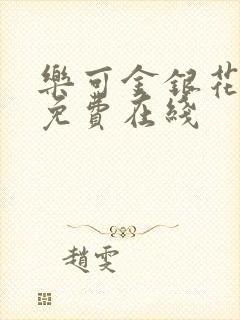 樂可金銀花
免費在綫
趙雯